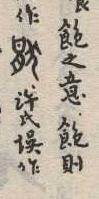 飽之意飽則
作 許氏誤作